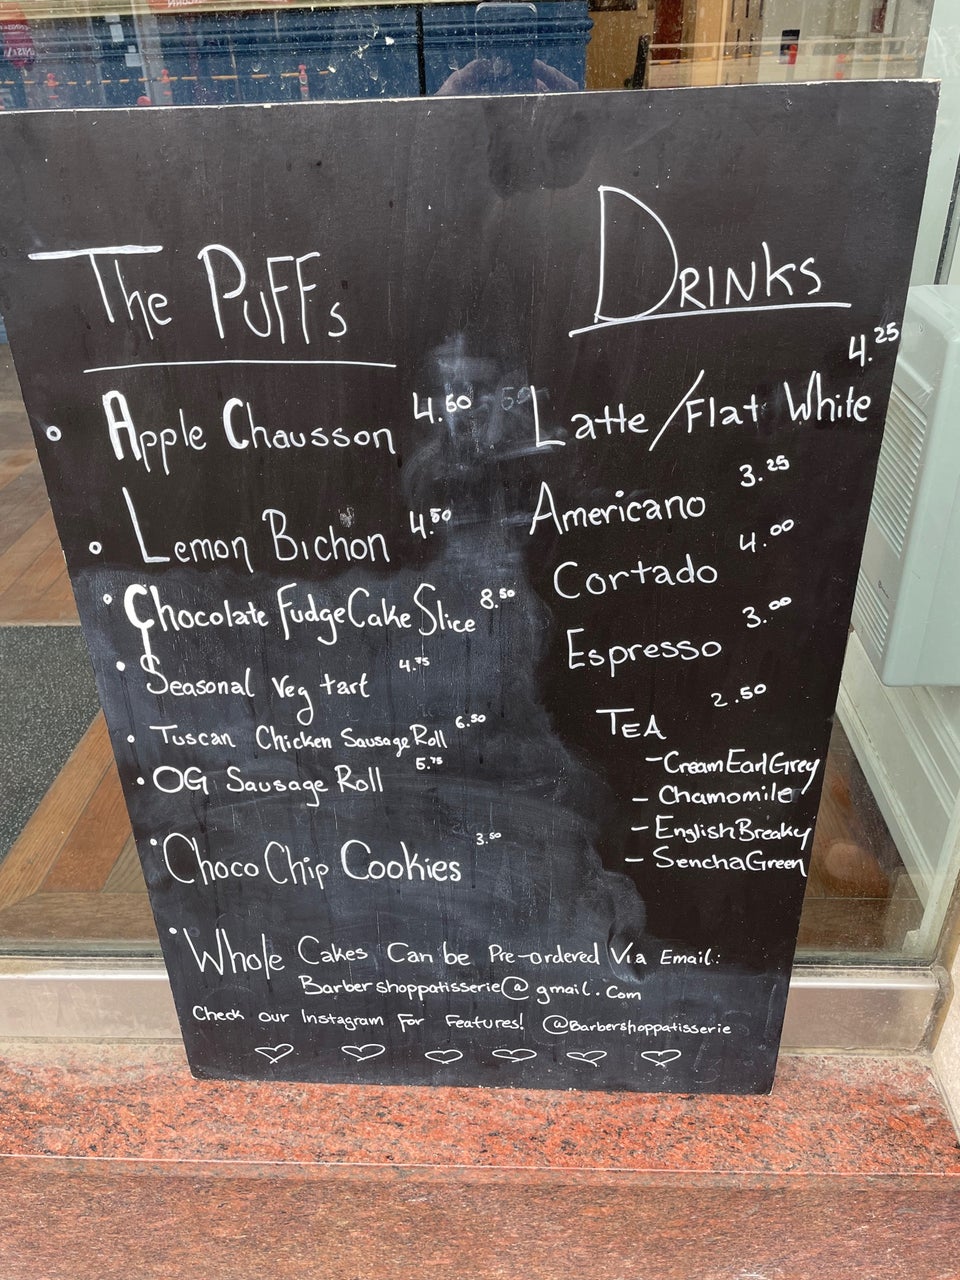 The Puffs
Apple Chausson 4.60
Lemon Bichon 4.50
Chocolate Fudge Cake Slice 8.50
Seasonal Veg tart 4.75
Tuscan Chicken Sausage Roll 6.50
OG Sausage Roll 5.75
Choco Chip Cookies 3.50
DRINKS
Latte/Flat White 4.25
Americano 3.25
Cortado 4.00
Espresso 3.00
TEA 2.50
- Cream Earl Grey
- Chamomile
- English Breaky
- Sencha Green
Whole Cakes Can be Pre-ordered Via Email:
Barbershoppatisserie@gmail.com
Check our Instagram For Features! @Barbershoppatisserie